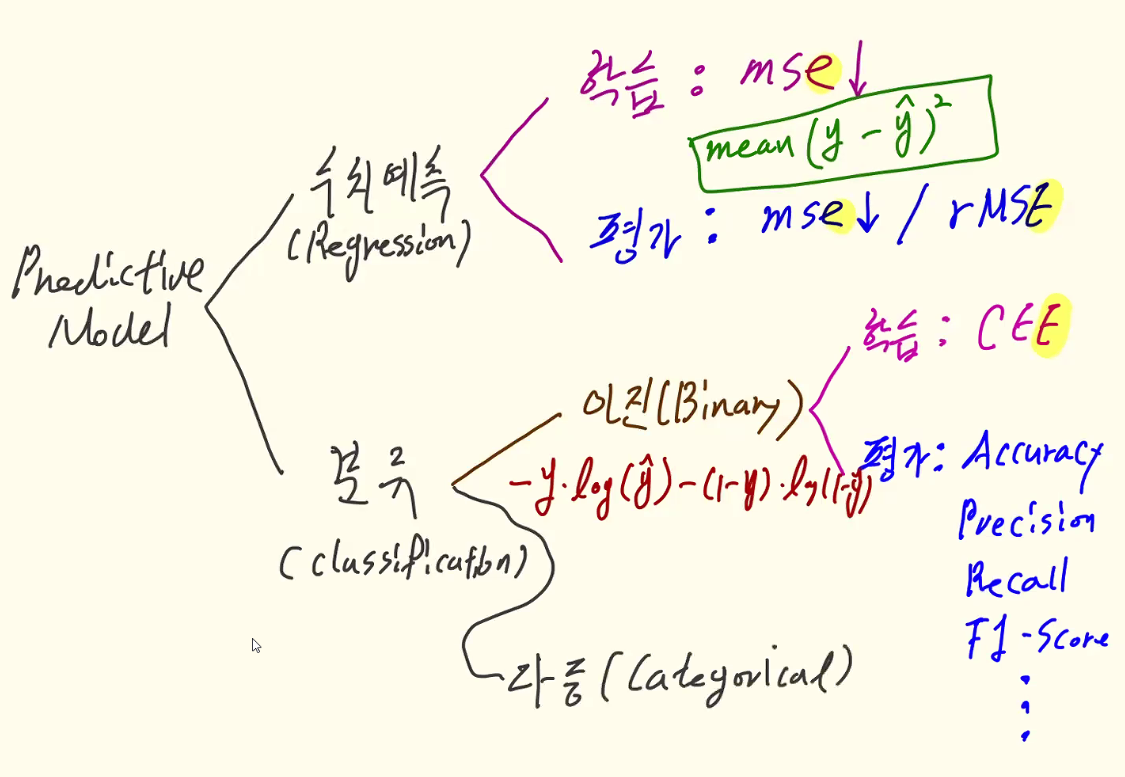 Predictive
Model
수치예측
(Regression)
학습 : mse ↓
mean (y - ŷ)²
평가 : mse ↓ / rMSE
분류
(classification)
이진(Binary)
-y·log(ŷ)-(1-y)·log(1-ŷ)
학습 : CEE
평가 : Accuracy
Precision
Recall
F1-Score
⋮
다중(Categorical)